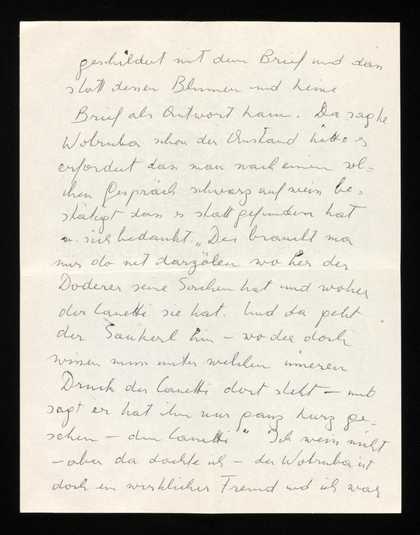 geschildert mit dem Brief und dass
statt dessen Blumen und keine
Brief als Antwort kam. Da sagte
Wotruba schon der Anstand hätte es
erfordert dass man nach einem sol-
chen Gespräch schwarz auf weiss be-
stätigt dass es stattgefunden hat
u. sich bedankt „Des braucht ma
mir do net darzölen wo her der
Doderer seine Sachen hat und woher
der Canetti sie hat. Und da geht
der Saukerl hin – wo der doch
wissen muss unter welchem inneren
Druck der Canetti dort steht – und
sagt er hat ihn nur ganz kurz ge-
sehen – den Canetti" Ich weiss nicht
– aber da dachte ich – der Wotruba ist
doch ein wirklicher Freund und ich war